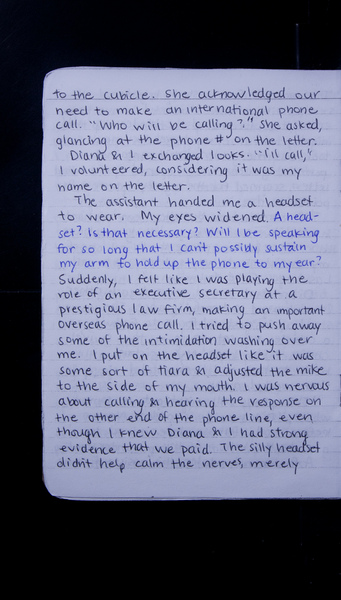 to the cubicle. She acknowledged our
need to make an international phone
call. "Who will be calling?" She asked,
glancing at the phone # on the letter.
Diana & I exchanged looks. "I'll call,"
I volunteered, considering it was my
name on the letter.
The assistant handed me a headset
to wear. My eyes widened. A head-
set? Is that necessary? Will I be speaking
for so long that I can't possibly sustain
my arm to hold up the phone to my ear?
Suddenly, I felt like I was playing the
role of an executive secretary at a
prestigious law firm, making an important
overseas phone call. I tried to push away
some of the intimidation washing over
me. I put on the headset like it was
some sort of tiara & adjusted the mike
to the side of my mouth. I was nervous
about calling & hearing the response on
the other end of the phone line, even
though I knew Diana & I had strong
evidence that we paid. The silly headset
didn't help calm the nerves, merely